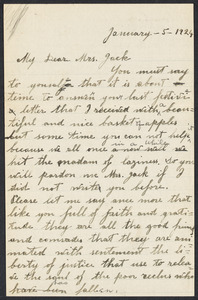 January - 5 - 192
My Dear Mrs. Jack
You must say
to yourself that it is about
time to answer your last
a letter that I received with a beau
tiful and nice basket apples
but some time you can not help
because in all once in a while
hit the of laziness. So you
will pardon me Mrs. Jack if I
did not wrote you before.
Please let me say once more that
like you full of faith and grati
tude. they are all the good
and comrades that they are ani
mated with sentiment the li
berty of justice that use to relea
se the soul of the poor
have been fallen.